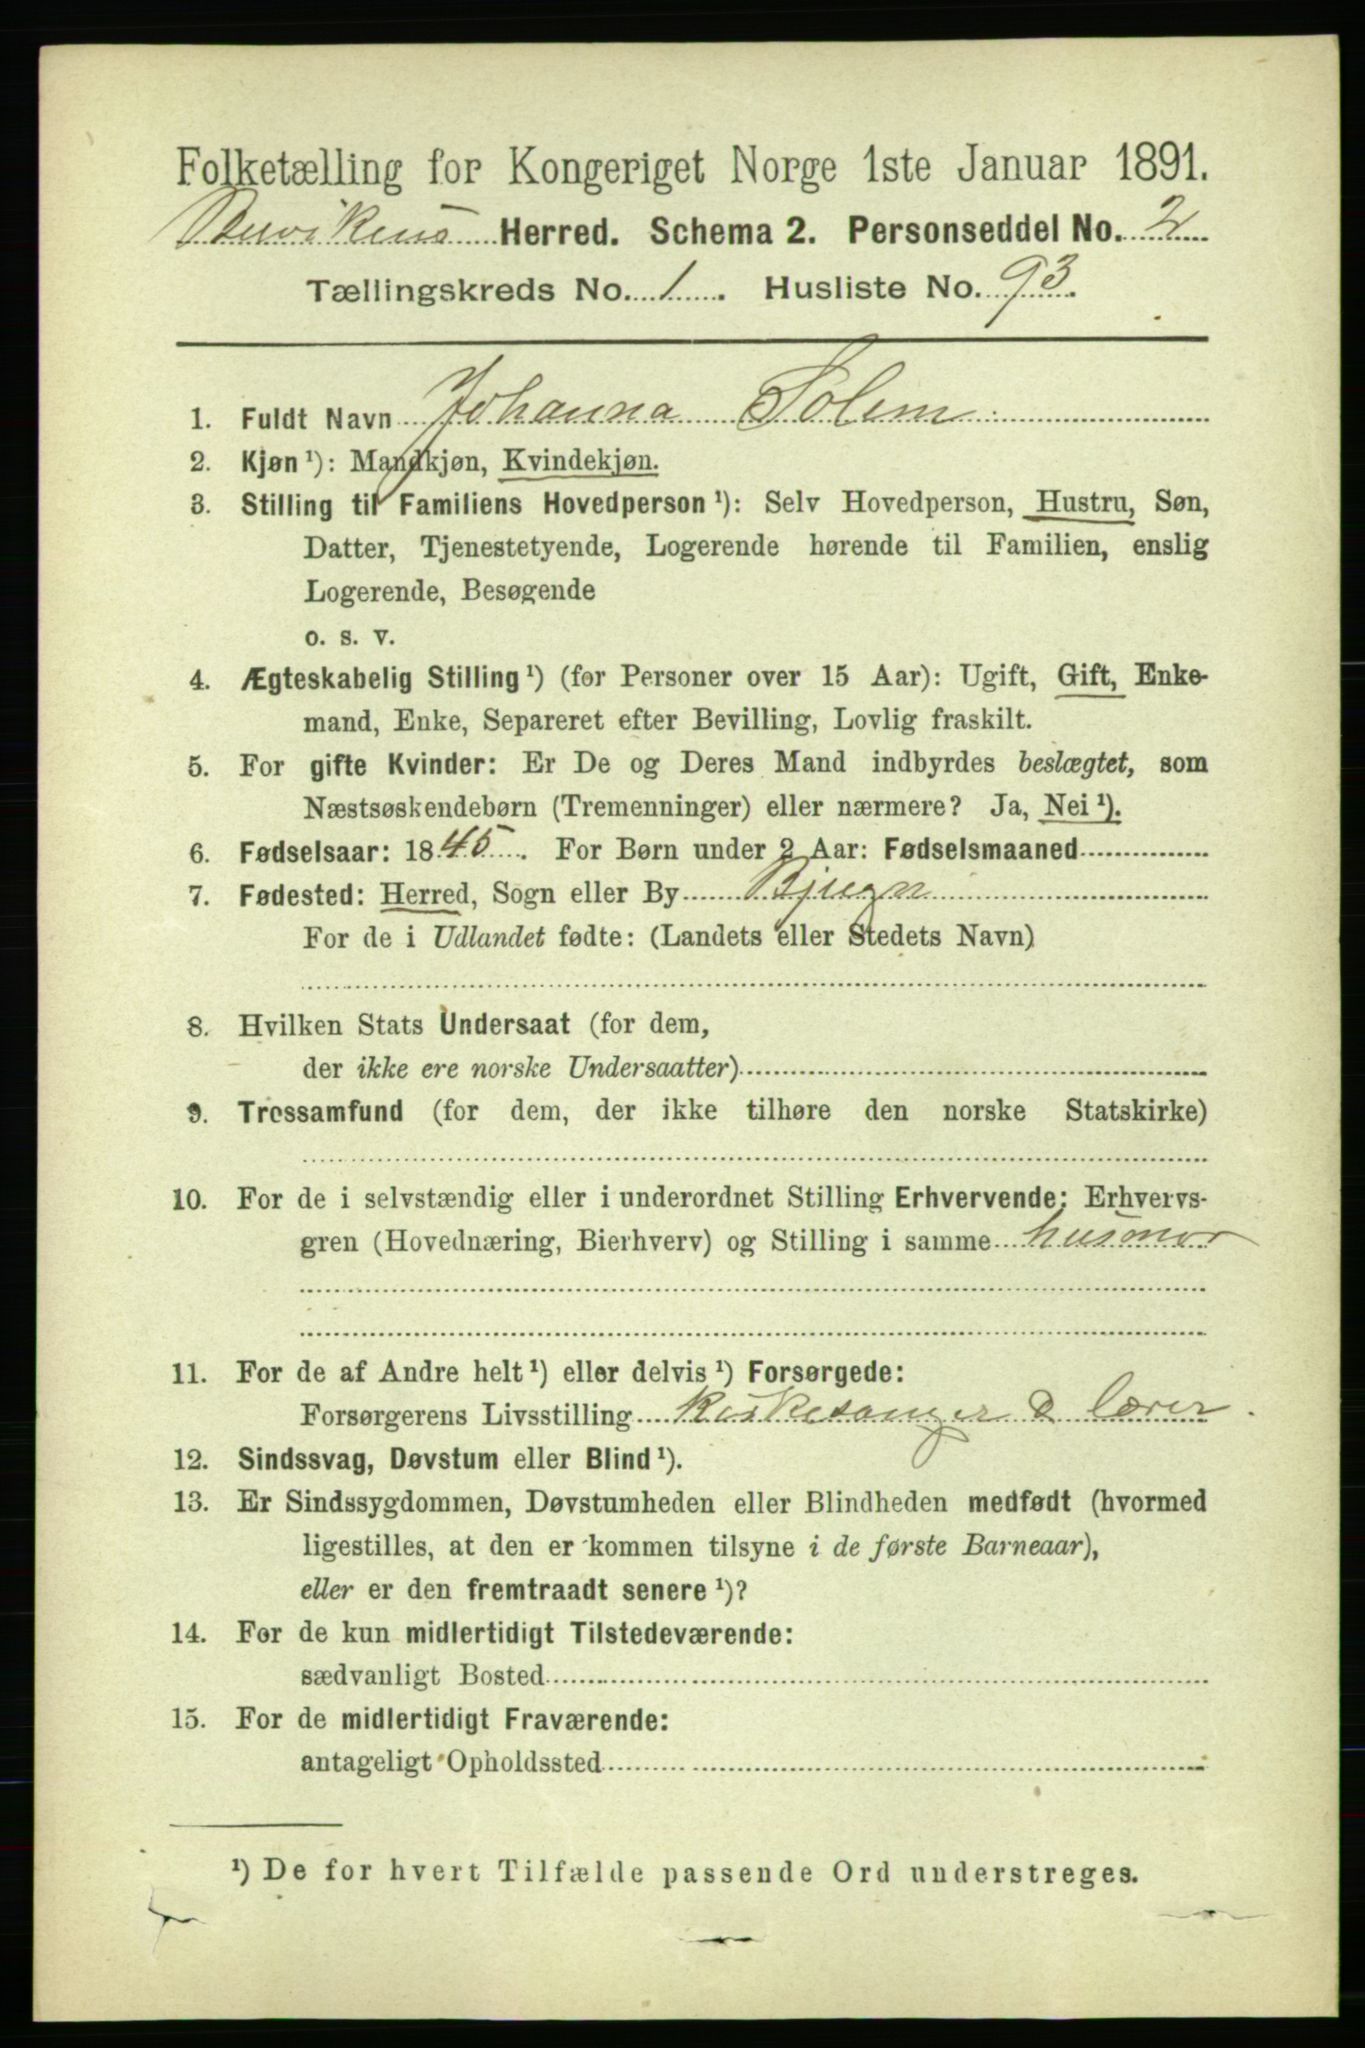 Folketælling for Kongeriget Norge 1ste Januar 1891.
Buvikens Herred. Schema 2. Personseddel No. 2
Tællingskreds No. 1. Husliste No. 93.
1. Fuldt Navn Johanna Solem
2. Kjøn ¹): Mandkjøn, Kvindekjøn.
3. Stilling til Familiens Hovedperson ¹): Selv Hovedperson, Hustru, Søn,
Datter, Tjenestetyende, Logerende hørende til Familien, enslig
Logerende, Besøgende
o. s. v.
4. Ægteskabelig Stilling ¹) (for Personer over 15 Aar): Ugift, Gift, Enke-
mand, Enke, Separeret efter Bevilling, Lovlig fraskilt.
5. For gifte Kvinder: Er De og Deres Mand indbyrdes beslægtet, som
Næstsøskendebørn (Tremenninger) eller nærmere? Ja, Nei ¹).
6. Fødselsaar: 1845. For Børn under 2 Aar: Fødselsmaaned
7. Fødested: Herred, Sogn eller By Bjugn
For de i Udlandet fødte: (Landets eller Stedets Navn)
8. Hvilken Stats Undersaat (for dem,
der ikke ere norske Undersaatter)
9. Trossamfund (for dem, der ikke tilhøre den norske Statskirke)
10. For de i selvstændig eller i underordnet Stilling Erhvervende: Erhvervs-
gren (Hovednæring, Bierhverv) og Stilling i samme husmor
11. For de af Andre helt ¹) eller delvis ¹) Forsørgede:
Forsørgerens Livsstilling kirkesanger & lærer.
12. Sindssvag, Døvstum eller Blind ¹).
13. Er Sindssygdommen, Døvstumheden eller Blindheden medfødt (hvormed
ligestilles, at den er kommen tilsyne i de første Barneaar),
eller er den fremtraadt senere ¹)?
14. For de kun midlertidigt Tilstedeværende:
sædvanligt Bosted
15. For de midlertidigt Fraværende:
antageligt Opholdssted
¹) De for hvert Tilfælde passende Ord understreges.